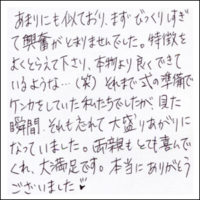 あまりにも似ており、まずびっくりしすぎ
て興奮がとまりませんでした。特徴を
よくとらえて下さり、本物より良くできて
いるような…(笑) それまで式の準備で
ケンカをしていた私たちでしたが見た
瞬間、それも忘れて大盛りあがりに
なっていました。両親もとても喜んで
くれ、大満足です。本当にありがとう
ございました♥